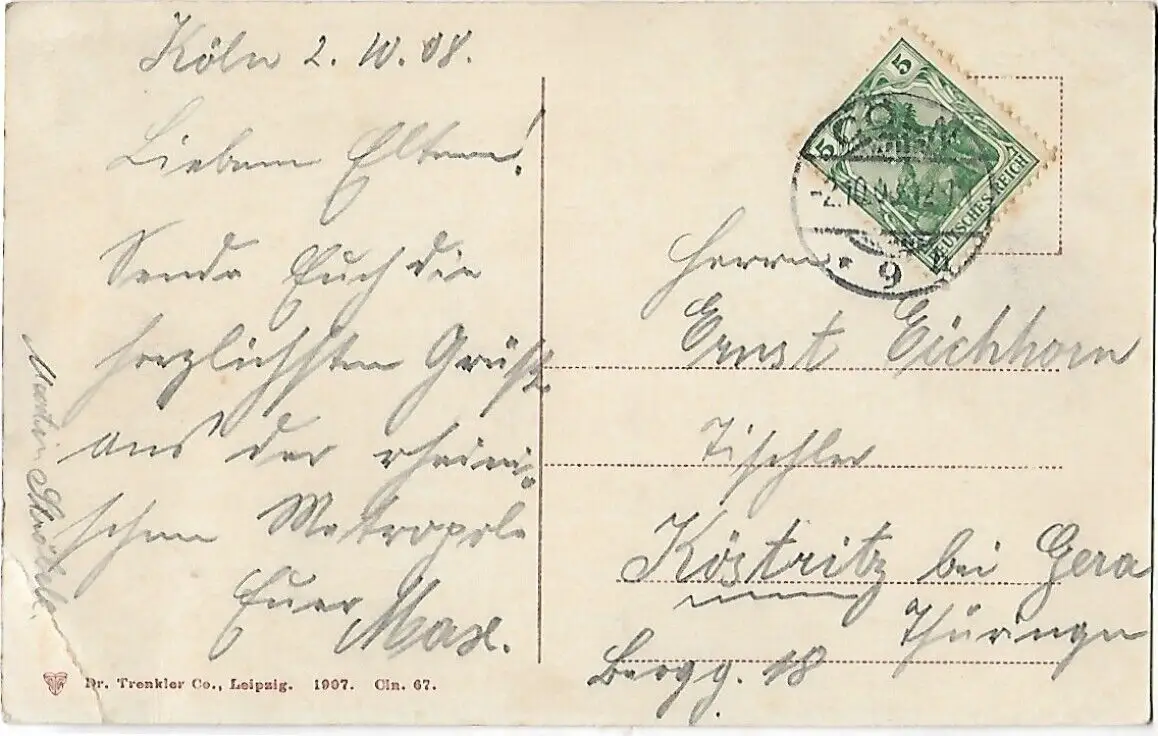 Köln 2. 10. 08.
Lieben Eltern!
Sende Euch die
herzlichsten Grüße
aus der rheini-
schen Metropole
Euer Max.
Martin
5
5
DEUTSCHES REICH
CÖLN
-2.10.08.12-1
* 9
Herrn
Ernst Eichhorn
Tischler
Köstritz bei Gera
Thüringen
Bergg. 18
Dr. Trenkler Co., Leipzig. 1907. Cln. 67.